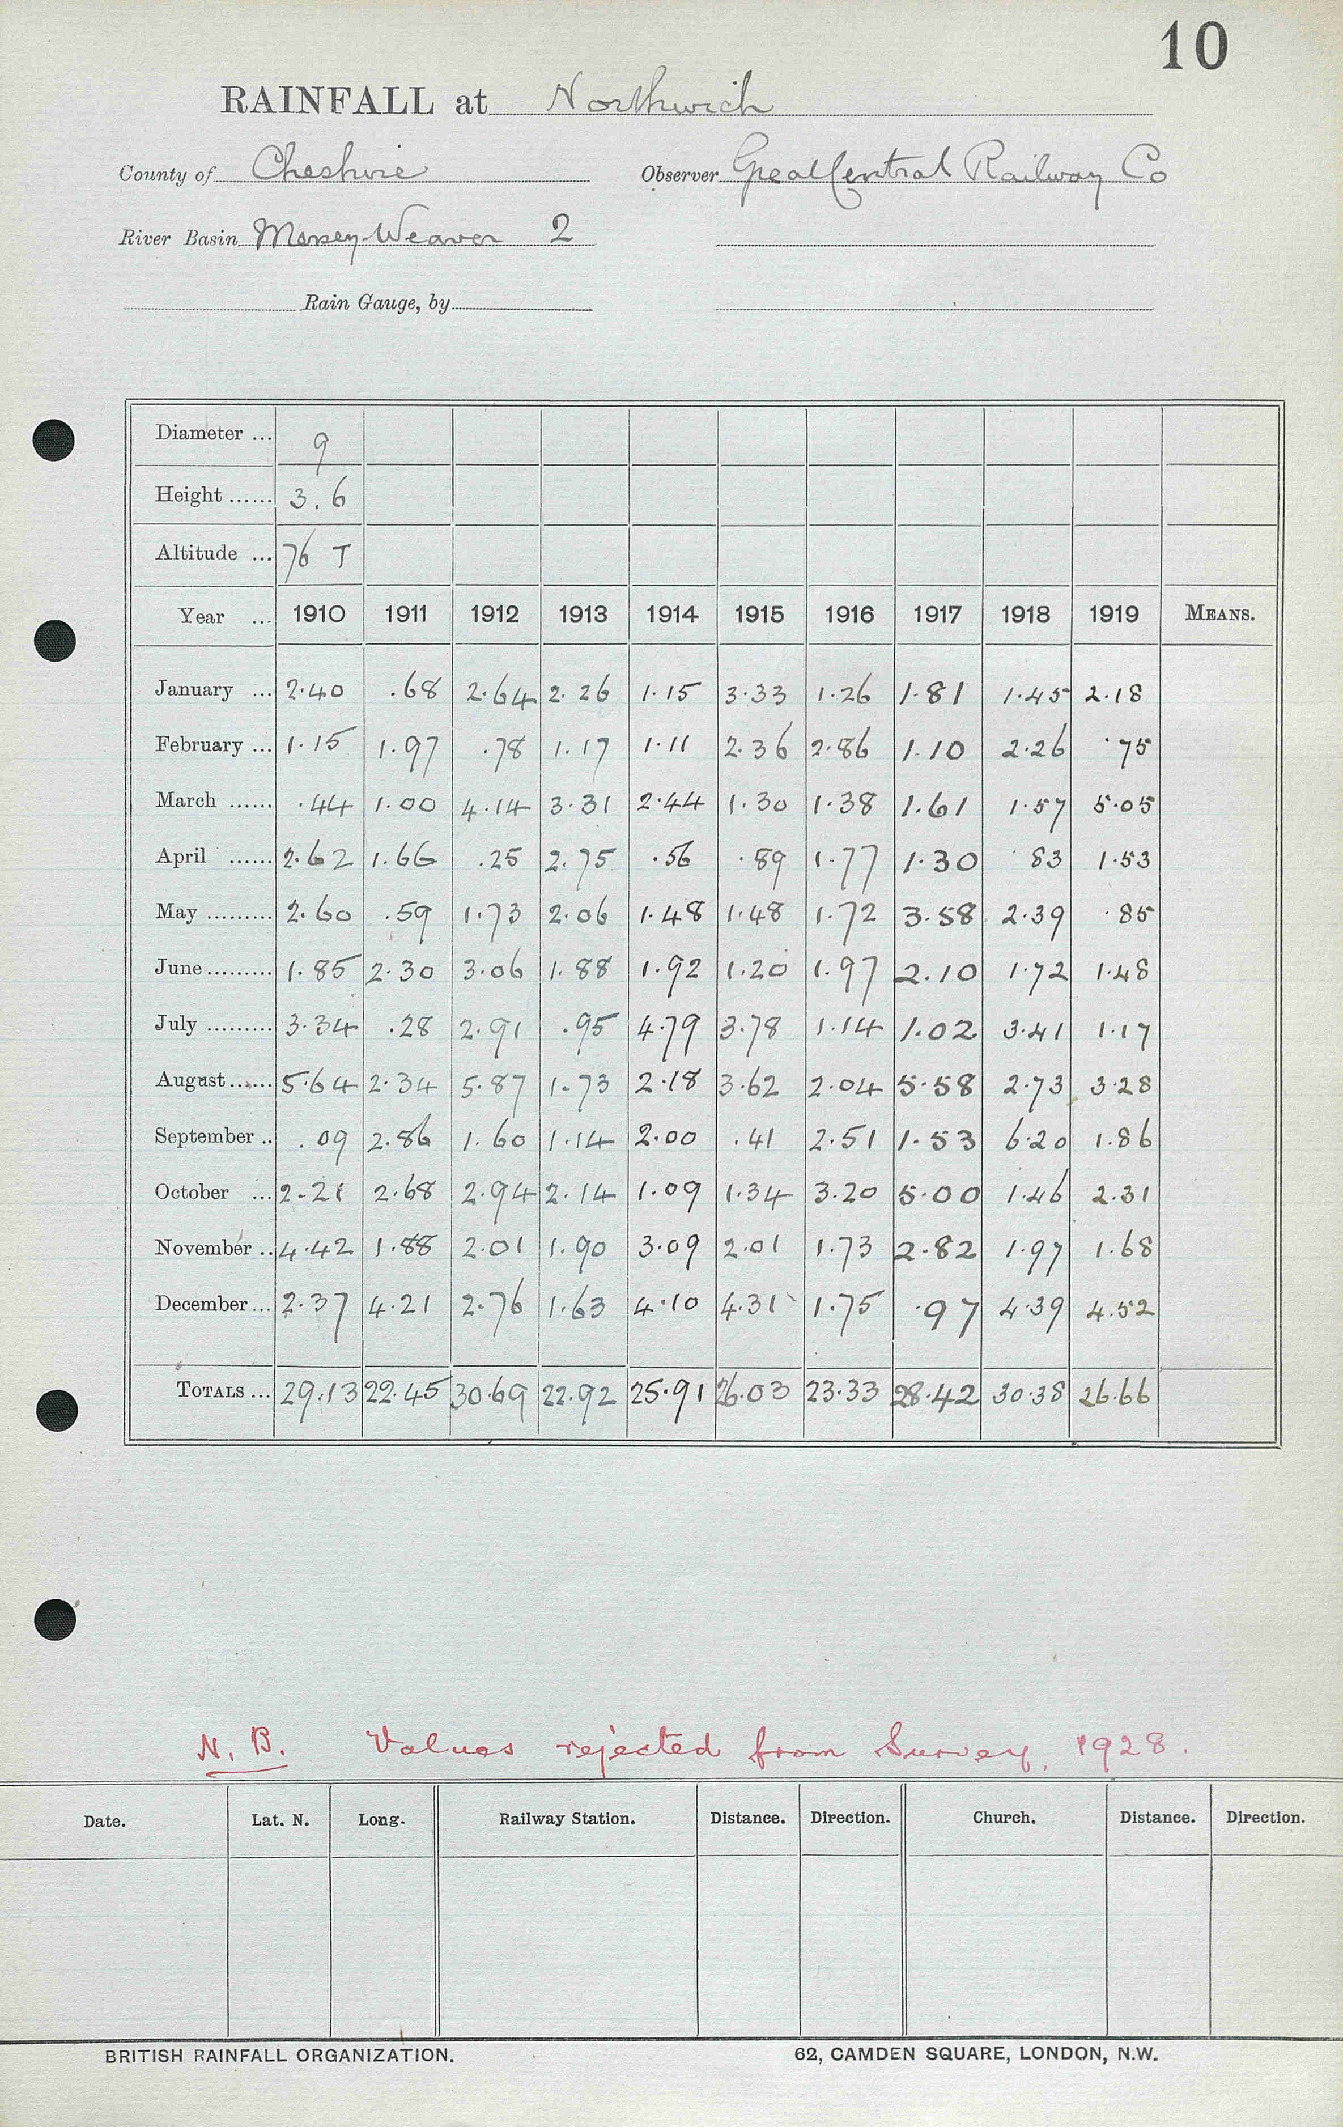 10
RAINFALL at Northwich
County of Cheshire Observer Great Central Railway Co
River Basin Mersey-Weaver 2
Rain Gauge, by
Diameter ... 9
Height ...... 3.6
Altitude ... 76 T
Year ... 1910 1911 1912 1913 1914 1915 1916 1917 1918 1919 MEANS.
January ... 2.40 .68 2.64 2.26 1.15 3.33 1.26 1.81 1.45 2.18
February ... 1.15 1.97 .78 1.17 1.11 2.36 2.86 1.10 2.26 .75
March ...... .44 1.00 4.14 3.31 2.44 1.30 1.38 1.61 1.57 5.05
April ...... 2.62 1.66 .25 2.75 .56 .89 1.77 1.30 .83 1.53
May ......... 2.60 .59 1.73 2.06 1.48 1.48 1.72 3.58 2.39 .85
June ......... 1.85 2.30 3.06 1.88 1.92 1.20 1.97 2.10 1.72 1.48
July ......... 3.34 .28 2.91 .95 4.79 3.78 1.14 1.02 3.41 1.17
August ...... 5.64 2.34 5.87 1.73 2.18 3.62 2.04 5.58 2.73 3.28
September .. .09 2.86 1.60 1.14 2.00 .41 2.51 1.53 6.20 1.86
October ... 2.21 2.68 2.94 2.14 1.09 1.34 3.20 5.00 1.46 2.31
November .. 4.42 1.88 2.01 1.90 3.09 2.01 1.73 2.82 1.97 1.68
December ... 2.37 4.21 2.76 1.63 4.10 4.31 1.75 .97 4.39 4.52
TOTALS ... 29.13 22.45 30.69 22.92 25.91 26.03 23.33 28.42 30.38 26.66
N.B. Values rejected from Survey, 1928.
Date. Lat. N. Long. Railway Station. Distance. Direction. Church. Distance. Direction.
BRITISH RAINFALL ORGANIZATION. 62, CAMDEN SQUARE, LONDON, N.W.